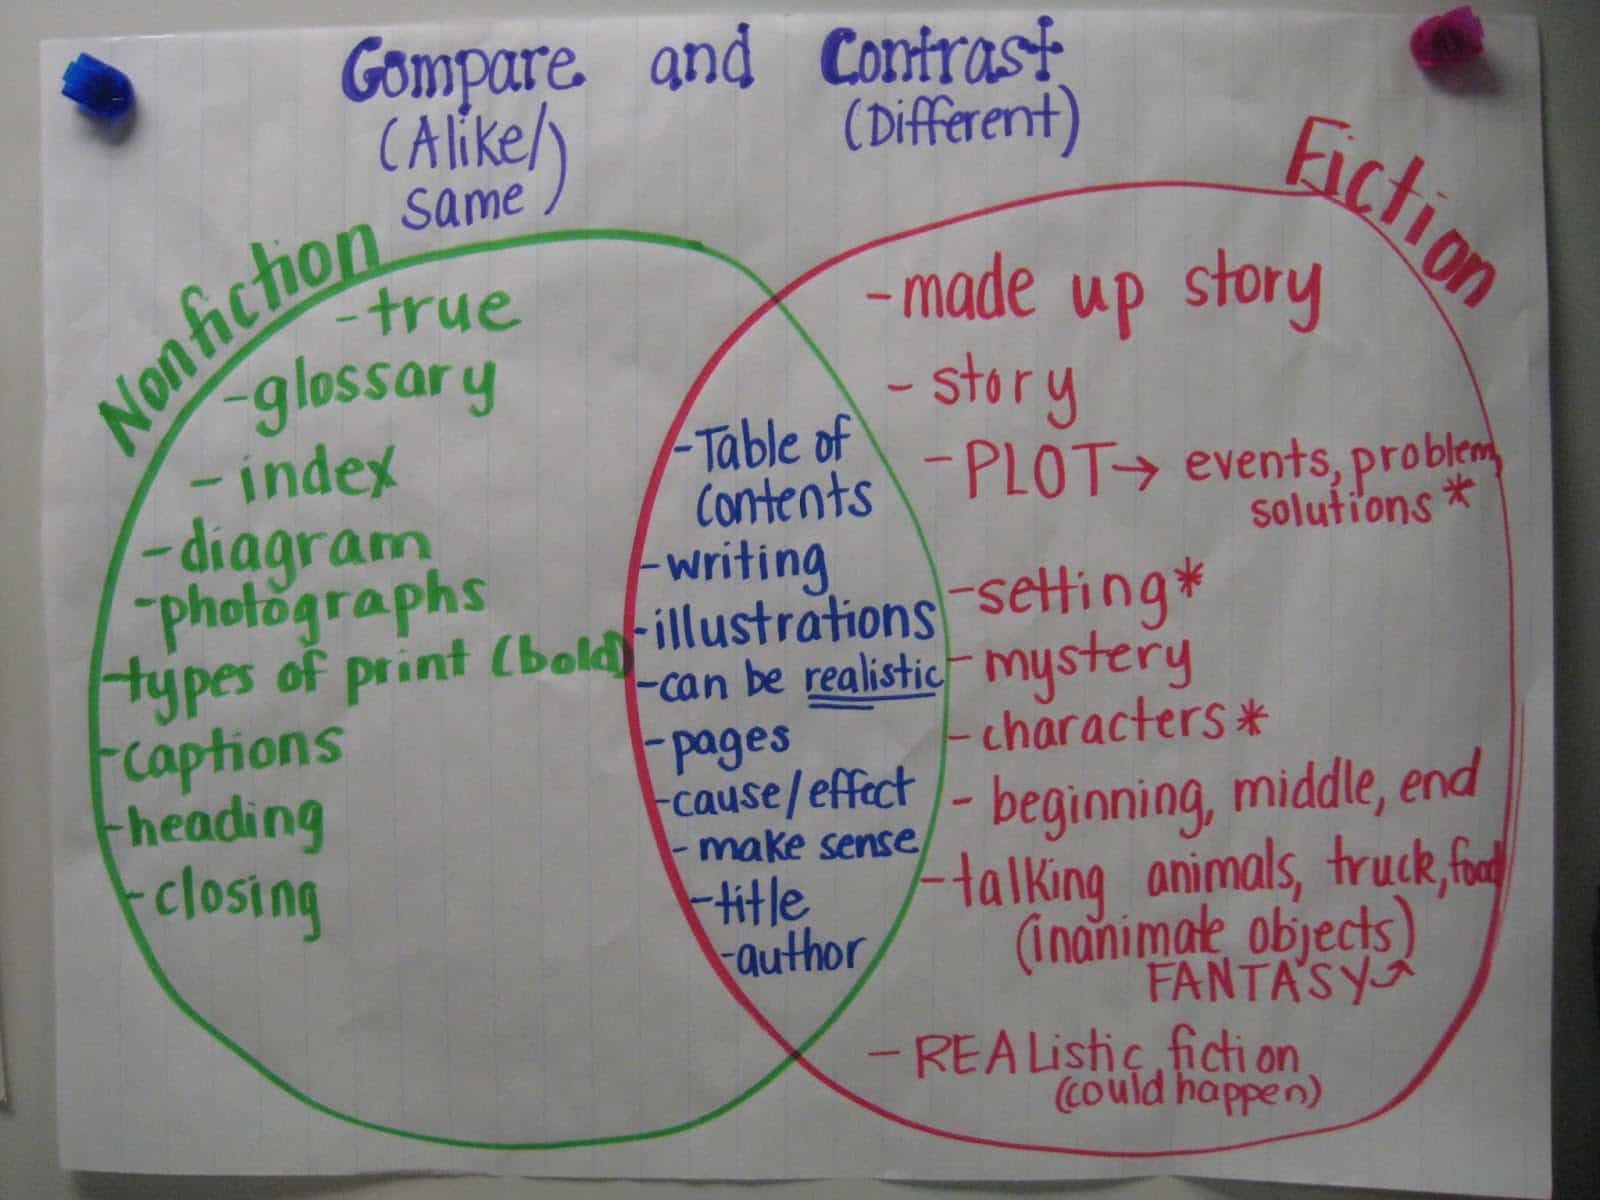 Compare and Contrast
(Alike/ same)
(Different)
Nonfiction
-true
-glossary
-index
-diagram
-photographs
-types of print (bold)
-captions
-heading
-closing
-Table of
contents
-writing
-illustrations
-can be realistic
-pages
-cause/effect
- make sense
-title
-author
Fiction
-made up story
- story
- PLOT→ events, problem,
solutions*
-setting*
- mystery
- characters*
- beginning, middle, end
-talking animals, truck, food
(inanimate objects)
FANTASY
- REAListic fiction
(could happen)